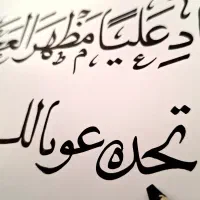 دِ عَلِيًّا مَظْهَرَ الْعَ
تجده عونا لك